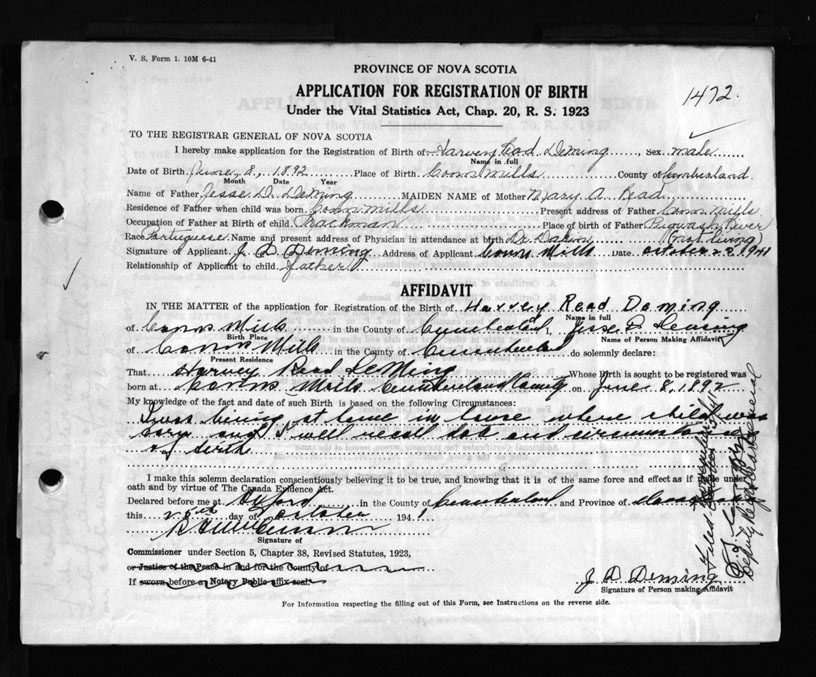 V. S. Form 1. 10M 6-41
PROVINCE OF NOVA SCOTIA
APPLICATION FOR REGISTRATION OF BIRTH
Under the Vital Statistics Act, Chap. 20, R. S. 1923
1472.
TO THE REGISTRAR GENERAL OF NOVA SCOTIA
I hereby make application for the Registration of Birth of Harvey Read Deming, Sex male
Name in full
Date of Birth June 8, 1892 Place of Birth Conns Mills County of Cumberland
Month Date Year
Name of Father Jesse D. Deming MAIDEN NAME of Mother Mary A. Read
Residence of Father when child was born Conns Mills Present address of Father Conns Mills
Occupation of Father at Birth of child Place of birth of Father Pugwash River
Race Portuguese Name and present address of Physician in attendance at birth Dr. (not living)
Signature of Applicant J. D. Deming Address of Applicant Conns Mills Date October 1941
Relationship of Applicant to child father
AFFIDAVIT
IN THE MATTER of the application for Registration of the Birth of Harvey Read Deming
Name in full
of Conns Mills in the County of Cumberland I, Jesse D. Deming
Birth Place Name of Person Making Affidavit
of Conns Mills in the County of Cumberland do solemnly declare:
Present Residence
That Harvey Read Deming Whose birth is sought to be registered was
born at Conns Mills Cumberland County on June 8, 1892
My knowledge of the fact and date of such Birth is based on the following Circumstances:
I was living at home in house where child was
born and I well recall date and circumstances
of birth
I make this solemn declaration conscientiously believing it to be true, and knowing that it is of the same force and effect as if made under
oath and by virtue of The Canada Evidence Act.
Declared before me at Oxford in the County of Cumberland and Province of Nova Scotia
this day of October 1941
Signature of
Commissioner under Section 5, Chapter 38, Revised Statutes, 1923,
or Justice of the Peace in and for the County of
If sworn before a Notary Public affix seal.
J. D. Deming
Signature of Person making Affidavit
For Information respecting the filling out of this Form, see Instructions on the reverse side.
Filed
Deputy Registrar General